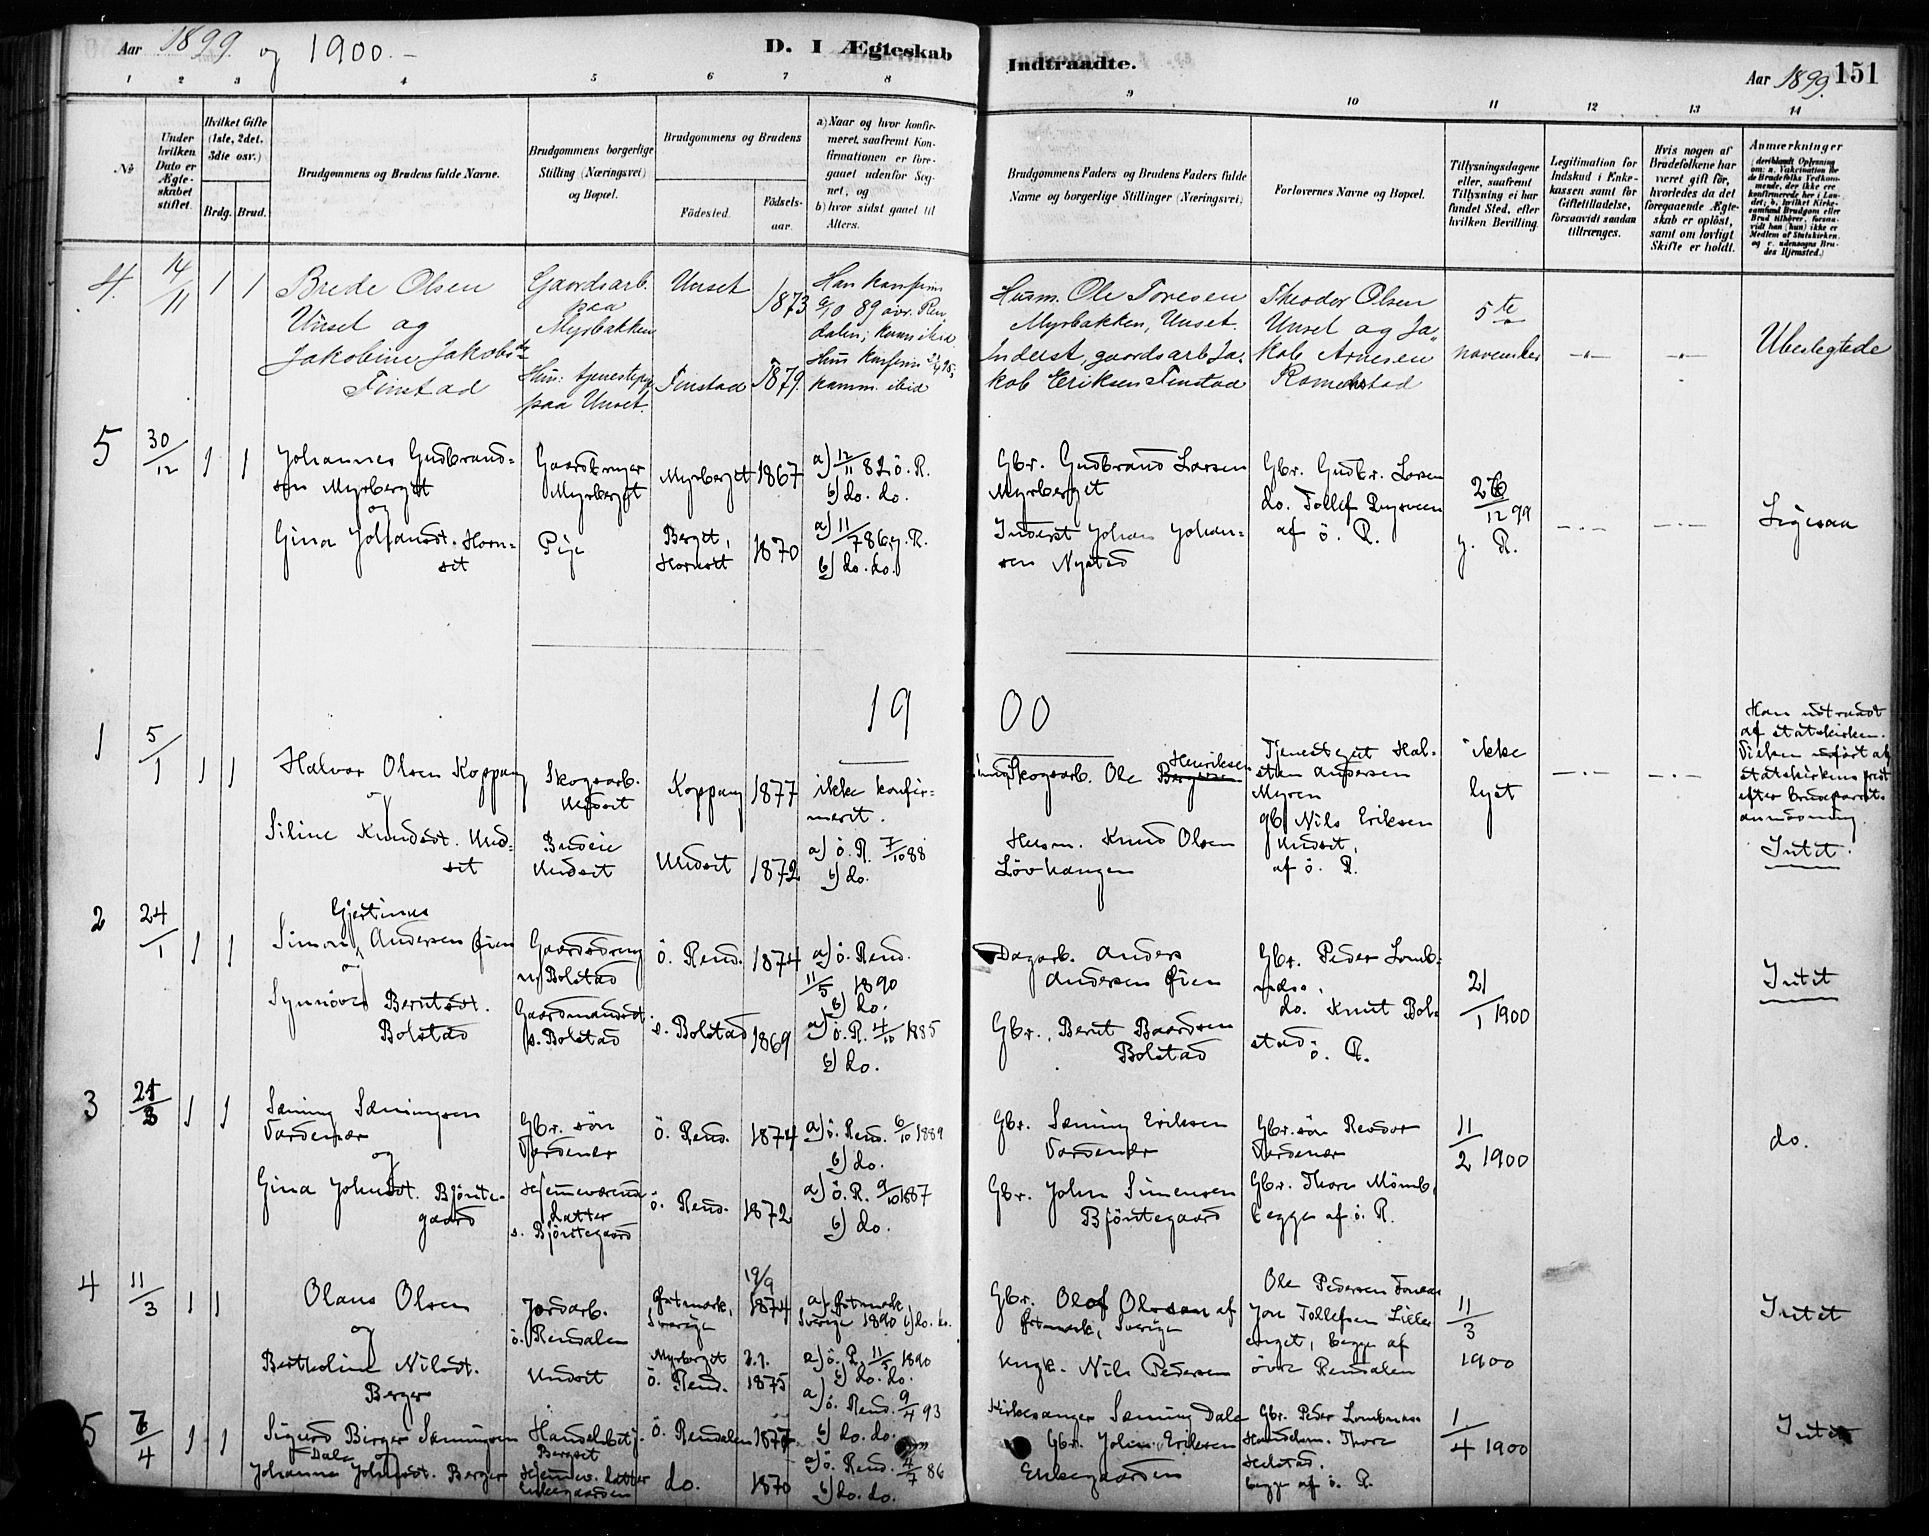 Aar 1899 og 1900.-
D. I Ægteskab
Indtraadte.
Aar 1899. 151
1 2 3 4 5 6 7 8 9 10 11 12 13 14
No
Under hvilken Dato er Ægteskabet stiftet.
Hvilket Gifte (1ste, 2det. 3die osv.)
Brdg. Brud.
Brudgommens og Brudens fulde Navne.
Brudgommens borgerlige Stilling (Næringsvei) og Bopæl.
Brudgommens og Brudens
Fødested.
Fødselsaar.
a) Naar og hvor konfirmeret, saafremt Konfirmationen er foregaaet udenfor Sognet, og
b) hvor sidst gaaet til Alters.
Brudgommens Faders og Brudens Faders fulde Navne og borgerlige Stillinger (Næringsvei)
Forlovernes Navne og Bopæl.
Tillysningsdagene eller, saafremt Tillysning ei har fundet Sted, efter hvilken Bevilling.
Legitimation for Indskud i Enkekassen samt for Giftetilladelse, forsaavidt saadan tiltrænges.
Hvis nogen af Brudefolkene har været gift før, hvorledes da det foregaaende Ægteskab er opløst, samt om lovligt Skifte er holdt.
Anmærkninger
4. 14/11 1 1
Brede Olsen
Unset og
Jakobine Jakobsdr
Finstad
Gaardsarb.
paa
Myrbakken
Hun: tjenestepige
paa Unset.
Unset 1873
Finstad 1879
Han konfirm
89 øvr. Rendalen; komm ibid
komm. ibid
Husm. Ole Toresen
Myrbakken, Unset.
Inderst, gaardsarb Jakob Eriksen Finstad
Theodor Olsen
Unset og Jakob Arnesen
Romenstad
5te
november
Ubeslegtede
5 30/12 1 1
Johannes Gudbrandsen Myrberget
og
Gina Johansdt. Hornset
Gaardbruger
Myrberget
Pige
Myrberget 1867
Berget,
Hornset 1870
a) 12/11 82 ö. R.
b) do. do.
a) 11/7 86 y. R.
b) do. do.
Gbr. Gudbrand Larsen
Myrberget
Inderst Johan Johansen Nystad
Gbr. Gudbr. Larsen
do. Tollef
af ö. R.
26/12 99
y. R.
Ligesaa
19 00
1 5/1 1 1
Halvor Olsen Koppang
og
Siline Knudsdt. Undset
Skogsarb.
Undset
Budeie
Undset
Koppang 1877
Undset 1872
ikke konfirmeret.
a) ö. R. 7/10 88
b) do.
Skogsarb. Ole Henriksen
Husm. Knud Olsen
Lövhaugen
Tjenestegut Halsten Andersen
Myren
gb Nils Eriksen
Undset,
af ö. R.
ikke
lyst
Han udtraadt
af statskirken.
Vielsen udført af
statskirkens prest
efter brudeparrets
anmodning.
Intet.
2 24/1 1 1
Gjertinus
Simon Andersen Øien
og
Synnöve Berntsdt.
Bolstad
Gaardsdreng
n. Bolstad
Gaardmandsdt.
s. Bolstad
ö. Rend. 1874
s. Bolstad 1869
a) ö. Rend.
11/5 1890
b) do.
a) ö. R. 4/10 1885
b) do.
Dagarb. Anders
Andersen Øien
Gbr. Bernt Baardsen
Bolstad
Gbr. Peder Lombnæs.
do. Knut Bolstad ö. R.
21/1 1900
Intet
3 1 1
Sæming Sæmingsen
Vardenær
og
Gina Johnsdt. Bjöntegaard
Gbr. sön
Vardenær
Hjemmeværende
datter
s. Bjöntegaard
ö. Rend. 1874
ö. Rend. 1872
a) ö. Rend. 6/10 1889
b) do.
a) ö. R. 9/10 1887
b) do.
Gbr. Sæming Eriksen
Vardenær
Gbr. John Simensen
Bjöntegaard
Gbr. sön Reodor
Vardenær
Gbr. Thore Mömb.
begge af ö. R.
11/2 1900
do.
4 11/3 1 1
Olaus Olsen
og
Bertholine Nilsdt.
Berger
Jordarb.
ö. Rendalen
Undset
Østmark,
Sverige
19/9 1874
Myrberget
ö. Rend. 1875
a) Østmark,
Sverige 1890 b) do. do.
a) ö. R. 11/5 1890
b) do. do.
Gbr. Olof Olsson af
Østmark, Sverige
Ungk. Nils Pedersen
Ole Pedersen
Jon Tollefsen Lilleenget, begge af
övre Rendalen
11/3
1900
Intet
5 6/4 1 1
Sigurd Birger Sæmingsen
Dale og
Johanne Johnsdt. Berger
Handelsbetj.
Berget
Hjemmev. datter
Enkegaarden
ö. Rendalen
do. 1870
a) ö. Rend. 9/4 93
b) do. do.
a) ö. Rend. 4/7 86
b) do. do.
Kirkesanger Sæming Dale
Gbr. John Eriksen
Enkegaarden
Gbr. Peder Lombnæs
Handelsm. Thore
Helstad.
begge af ö. R.
1/4 1900
Intet